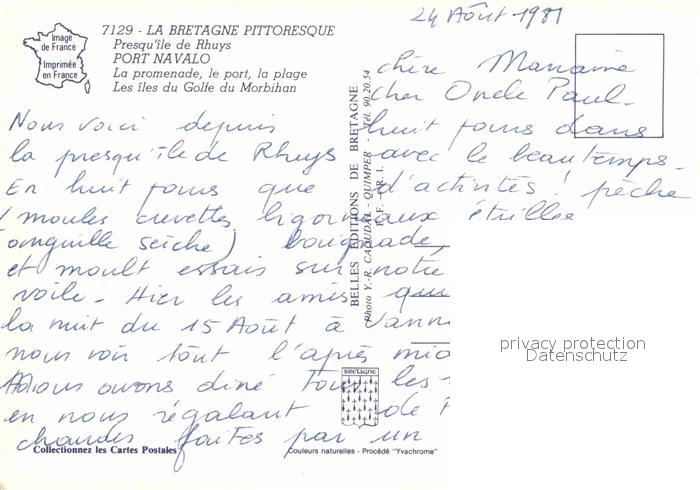 24 Août 1981
Image
de France
Imprimée
en France
7129 - LA BRETAGNE PITTORESQUE
Presqu'île de Rhuys
PORT NAVALO
La promenade, le port, la plage
Les îles du Golfe du Morbihan
Chère Marraine
cher Oncle Paul.
Nous voici depuis huit jours dans
la presqu'île de Rhuys avec le beau temps.
En huit jours que d'activités! pêche
(moules crevettes bigorneaux étrilles
anguille seiche) baignade,
et moult essais sur notre
voile. Hier les amis
la nuit du 15 Août à Vann
nous voir tout l'après mid
Nous avons diné tous les
en nous régalant de
chaudes faites par un
BELLES EDITIONS DE BRETAGNE
Photo Y.-R. CAOUDAL - QUIMPER - Tél. 90.20.54
BRETAGNE
Collectionnez les Cartes Postales
Couleurs naturelles - Procédé "Yvachrome"
privacy protection
Datenschutz